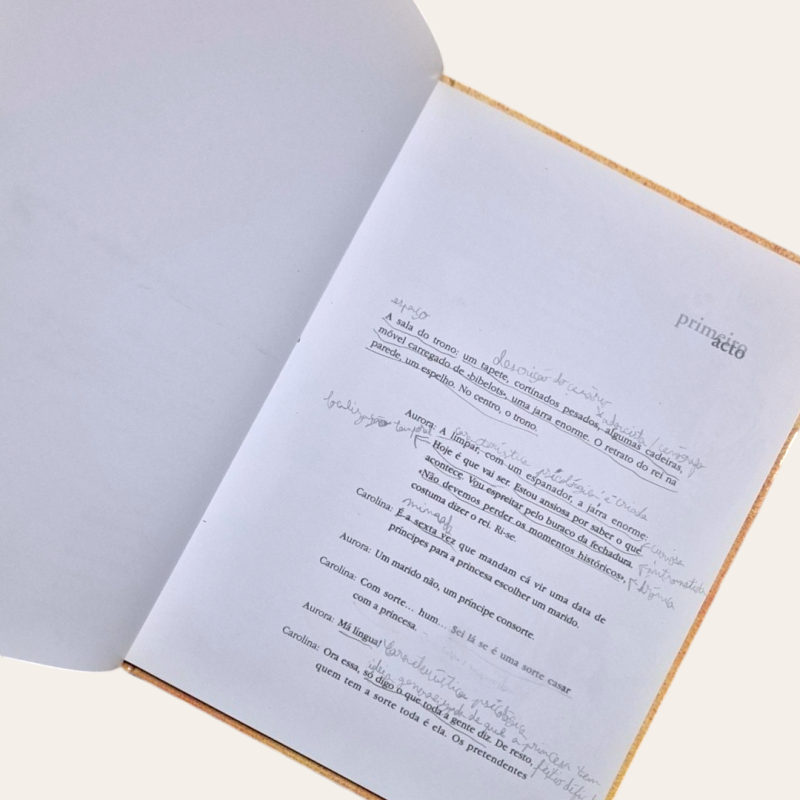 primeiro
acto
espaço
A sala do trono: um tapete, cortinados pesados, algumas cadeiras,
descrição do cenário
móvel carregado de «bibelots», uma jarra enorme. O retrato do rei na
parede, um espelho. No centro, o trono.
localização temporal
Aurora: A limpar, com um espanador, a jarra enorme:
característica psicológica criada
Hoje é que vai ser. Estou ansiosa por saber o que
curiosa
acontece. Vou espreitar pelo buraco da fechadura.
intrometida
«Não devemos perder os momentos históricos»,
costuma dizer o rei. Ri-se.
Carolina: É a sexta vez que mandam cá vir uma data de
príncipes para a princesa escolher um marido.
Aurora: Um marido não, um príncipe consorte.
Carolina: Com sorte... hum... Sei lá se é uma sorte casar
com a princesa.
Aurora: Má língua!
Característica psicológica
Carolina: Ora essa, só digo o que toda a gente diz. De resto,
ideia generalizada de que a princesa tem
quem tem a sorte toda é ela. Os pretendentes